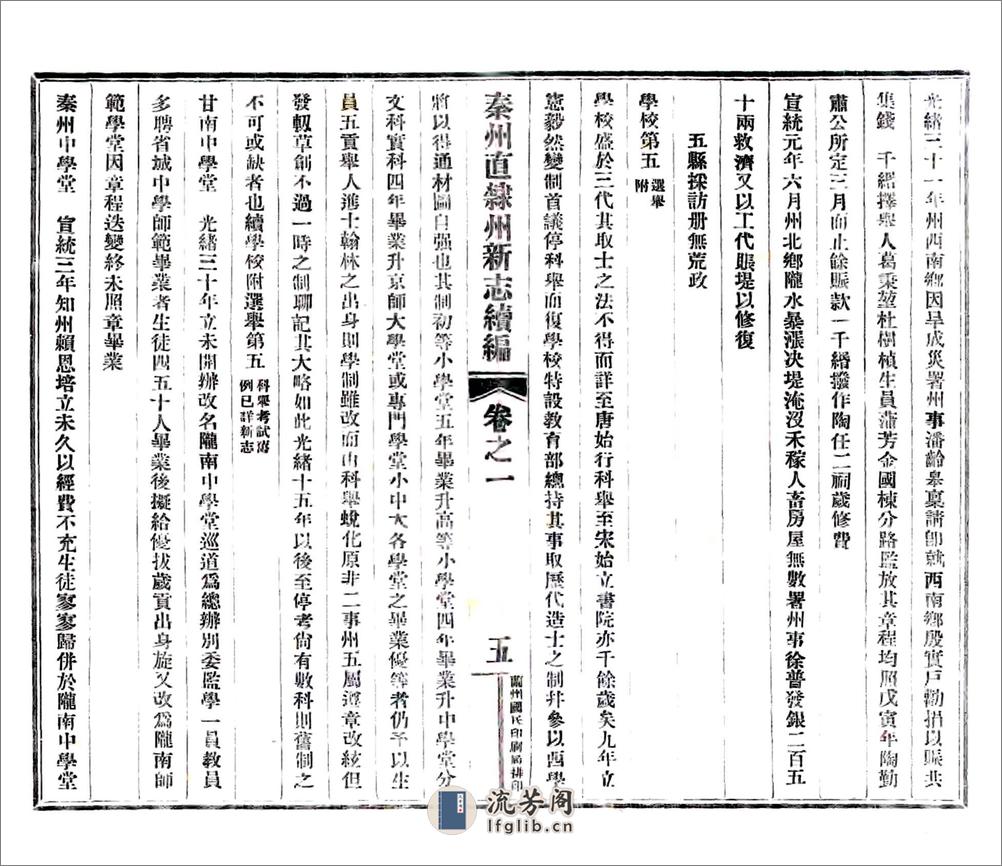 光緒三十一年州西南鄉因旱成災署州事潘齡皋稟請卽就西南鄉殷實戶勸捐以賑共
集錢　千緡擇舉人葛秉堃杜樹楨生員蒲芳金國棟分路監放其章程均照戊寅年陶勤
肅公所定三月而止餘賑款一千緡撥作陶任二祠歲修費
宣統元年六月州北鄉隴水暴漲決堤淹沒禾稼人畜房屋無數署州事徐普發銀二百五
十兩救濟又以工代賑堤以修復
五縣採訪册無荒政
學校第五 選舉附
學校盛於三代其取士之法不得而詳至唐始行科舉至宋始立書院亦千餘歲矣九年立
憲毅然變制首議停科舉而復學校特設教育部總持其事取歷代造士之制幷參以西學
秦州直隸州新志續編 卷之一 五 蘭州國民印刷局排印
將以得通材圖自强也其制初等小學堂五年畢業升高等小學堂四年畢業升中學堂分
文科實科四年畢業升京師大學堂或專門學堂小中大各學堂之畢業優等者仍予以生
員五貢舉人進士翰林之出身則學制雖改而由科舉蛻化原非二事州五屬遵章改絃但
發軔草創不過一時之制聊記其大略如此光緒十五年以後至停考尙有數科則舊制之
不可或缺者也續學校附選舉第五 科舉考試舊例已詳新志
甘南中學堂　光緒三十年立未開辦改名隴南中學堂巡道爲總辦別委監學一員教員
多聘省城中學師範畢業者生徒四五十人畢業後擬給優拔歲貢出身旋又改爲隴南師
範學堂因章程迭變終未照章畢業
秦州中學堂　宣統三年知州賴恩培立未久以經費不充生徒寥寥歸併於隴南中學堂
流芳阁
lfglib.cn